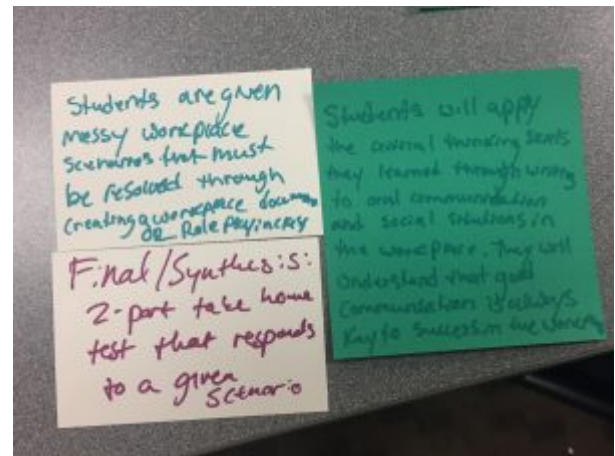 Students are given
messy workplace
scenarios that must
be resolved through
creating a workplace document
OR Role playing
Final/Synthesis:
2-part take home
test that responds
to a given
Scenario
Students will apply
the critical thinking skills
they learned through writing
to oral communication
and social situations in
the workplace. They will
understand that good
communication is always
key to success in the